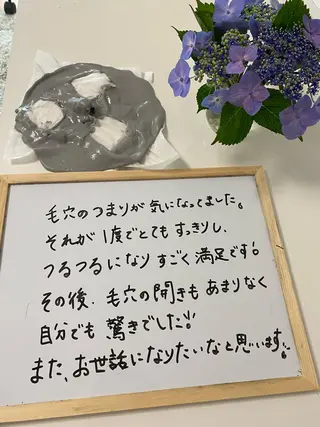 毛穴のつまりが気になってました。
それが1度でとてもすっきりし、
つるつるになりすごく満足です!
その後、毛穴の開きもあまりなく
自分でも驚きでした!!
また、お世話になりたいなと思います!!